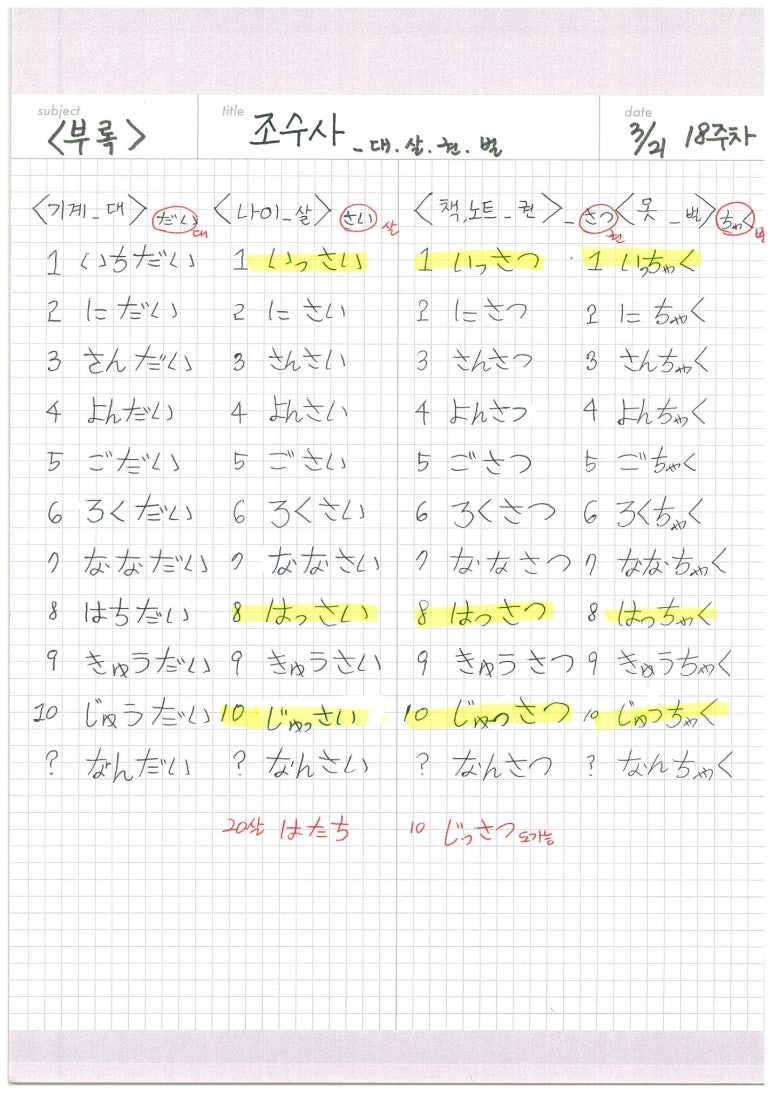 subject title date
<부록> 조수사 - 대.살.권.벌 3/21 18주차
<기계_대> だい 대 <나이_살> さい 살 <책,노트_권> - さつ 권 <옷_벌> ちゃく 벌
1 いちだい 1 いっさい 1 いっさつ 1 いっちゃく
2 にだい 2 にさい 2 にさつ 2 にちゃく
3 さんだい 3 さんさい 3 さんさつ 3 さんちゃく
4 よんだい 4 よんさい 4 よんさつ 4 よんちゃく
5 ごだい 5 ごさい 5 ごさつ 5 ごちゃく
6 ろくだい 6 ろくさい 6 ろくさつ 6 ろくちゃく
7 ななだい 7 ななさい 7 ななさつ 7 ななちゃく
8 はちだい 8 はっさい 8 はっさつ 8 はっちゃく
9 きゅうだい 9 きゅうさい 9 きゅうさつ 9 きゅうちゃく
10 じゅうだい 10 じゅっさい 10 じゅっさつ 10 じゅっちゃく
? なんだい ? なんさい ? なんさつ ? なんちゃく
20살 はたち 10 じっさつ 도가능